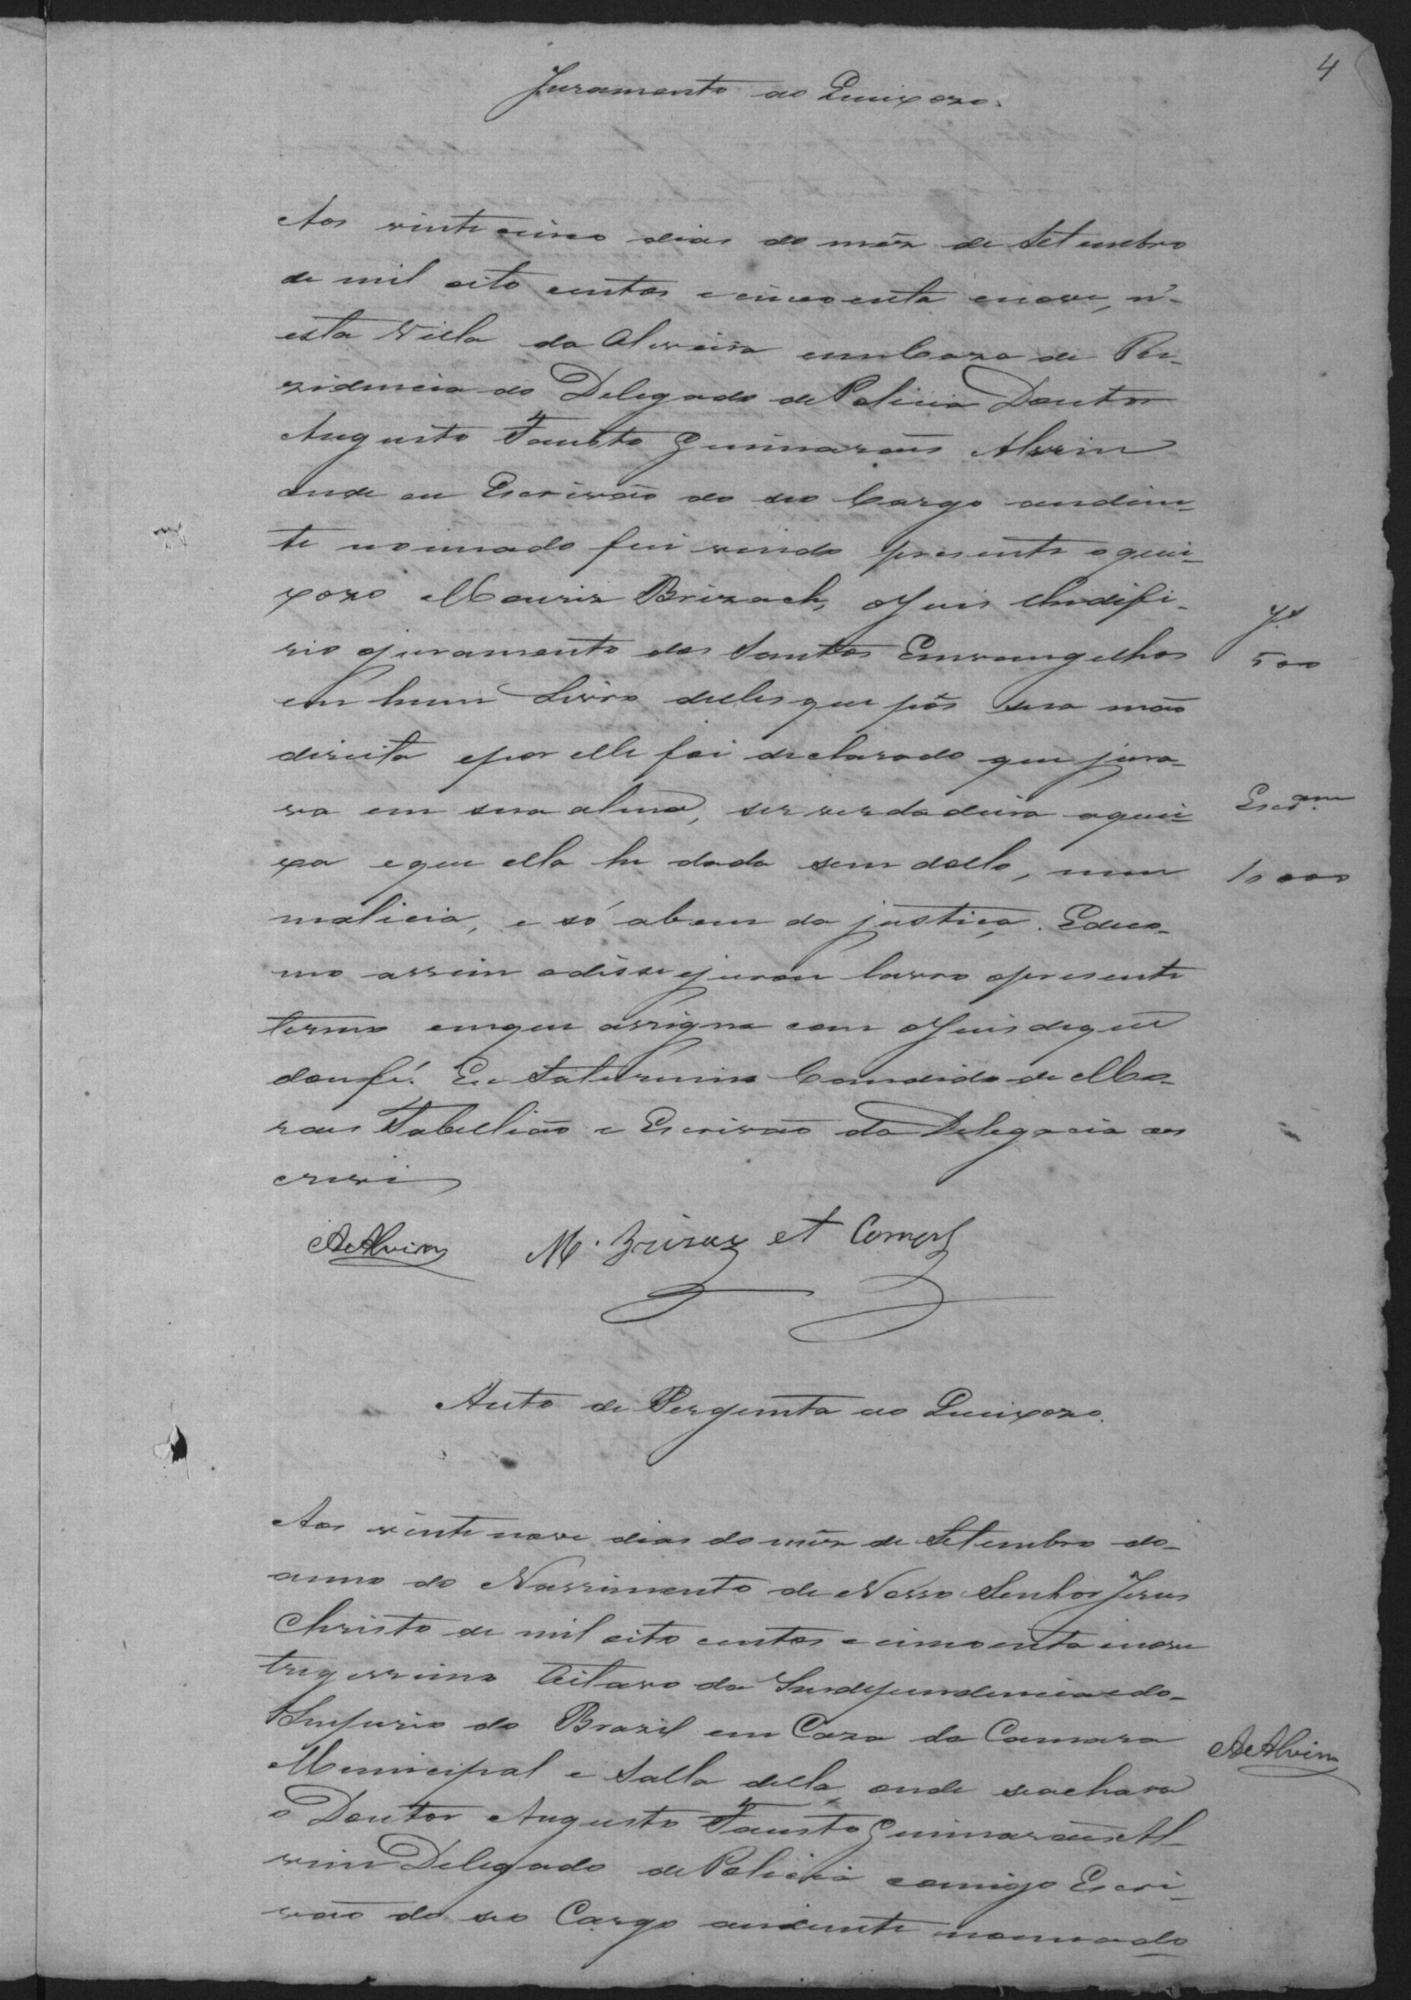 4
Juramento ao Queixozo.
Aos vinte cinco dias do mêz de Setembro
de mil oito centos e cincoenta enove, n'-
esta Villa da em Caza de Re-
zidencia do Delegado de Policia Doutor
Augusto Fausto Guimarães Alvim
onde eu Escrivão do seo Cargo adian-
te nomiado fui vindo presente o quei-
xozo Mauriz Brizach, o Juis lhe defi-
rio o juramento dos Santos Emvangelhos
em hum Livro delles que pôs sua mão
direita e por elle foi declarado que jura-
va em sua alma, ser verdadeira a quei-
xa e que ella he dada sem dollo, nem
malicia, e só abem da justiça. E de co-
mo assim o disse e jurou lavro o presente
termo em que assigna com o Juis de que
dou fé. Eu Saturnino Candido de Mo-
raes Tabellião e Escrivão da Delegacia o es
crevi
J.º
500
Escr.am
1000
AeAlvim M. Brisac et Comp
Auto de Pergunta ao Queixozo.
Aos vinte nove dias do mêz de Setembro do-
anno do Nassimento de Nosso Senhor Jezus
Christo de mil oito centos e cincoenta enove
trigessimo Oitavo da Independencia e do-
Imperio do Brazil em Caza da Camara
Municipal e Salla della, onde se achava
o Doutor Augusto Fausto Guimarães Al-
vim Delegado de Policia comigo Escri-
vão do seo Cargo adiante nomiado
AeAlvim